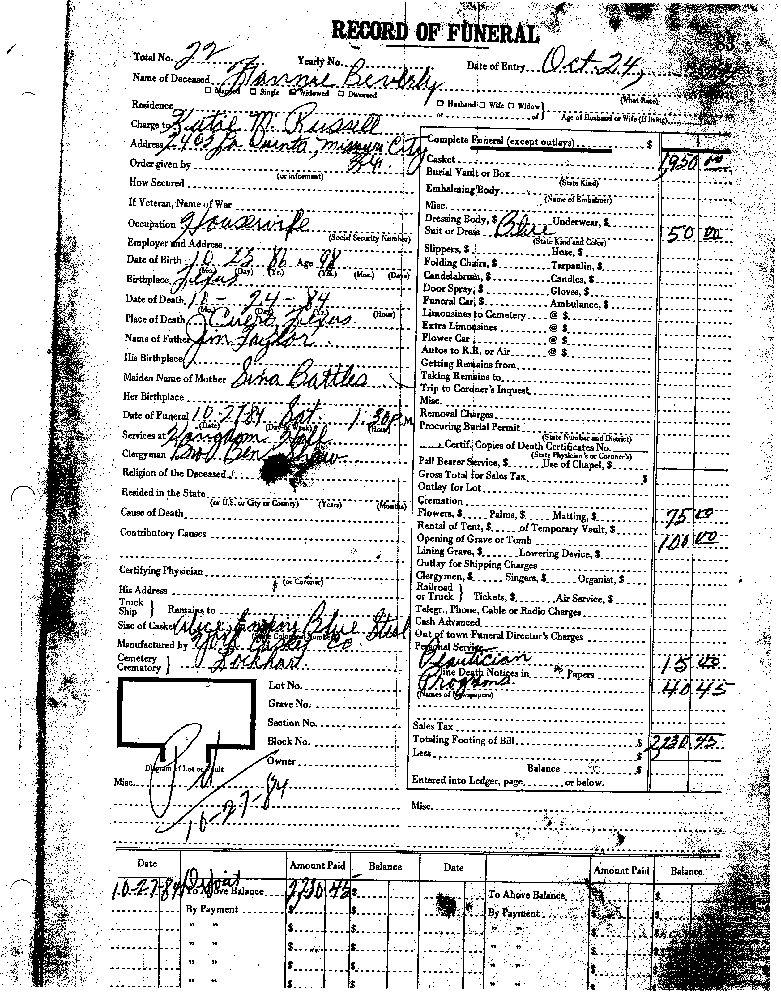 RECORD OF FUNERAL
83
Total No. 22 Yearly No. Date of Entry Oct. 24,
Name of Deceased Beverly
Married Single Widowed Divorced (What Race)
Husband Wife Widow
or of Age of Husband or Wife (if living)
Residence
Charge to M. Russell
Address La Quinta, Missouri City
Order given by
(or informant)
How Secured
If Veteran, Name of War
Occupation Housewife
(Social Security Number)
Employer and Address
Date of Birth 10 23 86 Age 98
(Mo.) (Day) (Yr.) (Yrs.) (Mos.) (Days)
Birthplace Texas
Date of Death 10 - 24 - 84
(Hour)
Place of Death Cuero, Texas
Name of Father Jim Taylor
His Birthplace
Maiden Name of Mother Sina Battles
Her Birthplace
Date of Funeral 10-27-84 Sat. 1:30 P.M.
(Date) (Day of Week) (Hour)
Services at Kingdom Hall
Clergyman Ben Shaw
Religion of the Deceased
Resided in the State
(or U.S. or City or County) (Years) (Months)
Cause of Death
Contributory Causes
Certifying Physician
(or Coroner)
His Address
Truck Ship } Remains to
Size of Casket Blue Steel
Manufactured by Casket Co.
Cemetery Crematory } Lockhart
Lot No.
Grave No.
Section No.
Block No.
Owner
Diagram of Lot or Vault
Pd
10-27-84
Misc.
Complete Funeral (except outlays) $
Casket 1950 00
Burial Vault or Box
(State Kind)
Embalming Body
(Name of Embalmer)
Misc.
Dressing Body, $ Underwear, $
Suit or Dress Blue 50 00
(State Kind and Color)
Slippers, $ Hose, $
Folding Chairs, $ Tarpaulin, $
Candelabrum, $ Candles, $
Door Spray, $ Gloves, $
Funeral Car, $ Ambulance, $
Limousines to Cemetery @ $
Extra Limousines @ $
Flower Car @ $
Autos to R.R. or Air @ $
Getting Remains from
Taking Remains to
Trip to Coroner's Inquest
Misc.
Removal Charges
Procuring Burial Permit
(State Number and District)
Certif. Copies of Death Certificates No.
(State Physician's or Coroner's)
Pall Bearer Service, $ Use of Chapel, $
Gross Total for Sales Tax $
Outlay for Lot
Cremation
Flowers, $ Palms, $ Matting, $ 75 00
Rental of Tent, $ of Temporary Vault, $
Opening of Grave or Tomb 100 00
Lining Grave, $ Lowering Device, $
Outlay for Shipping Charges
Clergymen, $ Singers, $ Organist, $
Railroad or Truck } Tickets, $ Air Service, $
Telegr., Phone, Cable or Radio Charges
Cash Advanced
Out of town Funeral Director's Charges
Personal Service
Beautician 15 00
line Death Notices in Papers
Programs 40 45
(Names of Newspapers)
Sales Tax
Totaling Footing of Bill $ 2230 45
Less $
Balance $
Entered into Ledger, page or below.
Misc.
Date Amount Paid Balance Date Amount Paid Balance
10-27-84 Deposit To Above Balance 2230 45 $ To Above Balance $ $
By Payment $ $ By Payment $ $
" " $ $ " " $ $
" " $ $ " " $ $
" " $ $ " " $ $
" " $ $ " " $ $